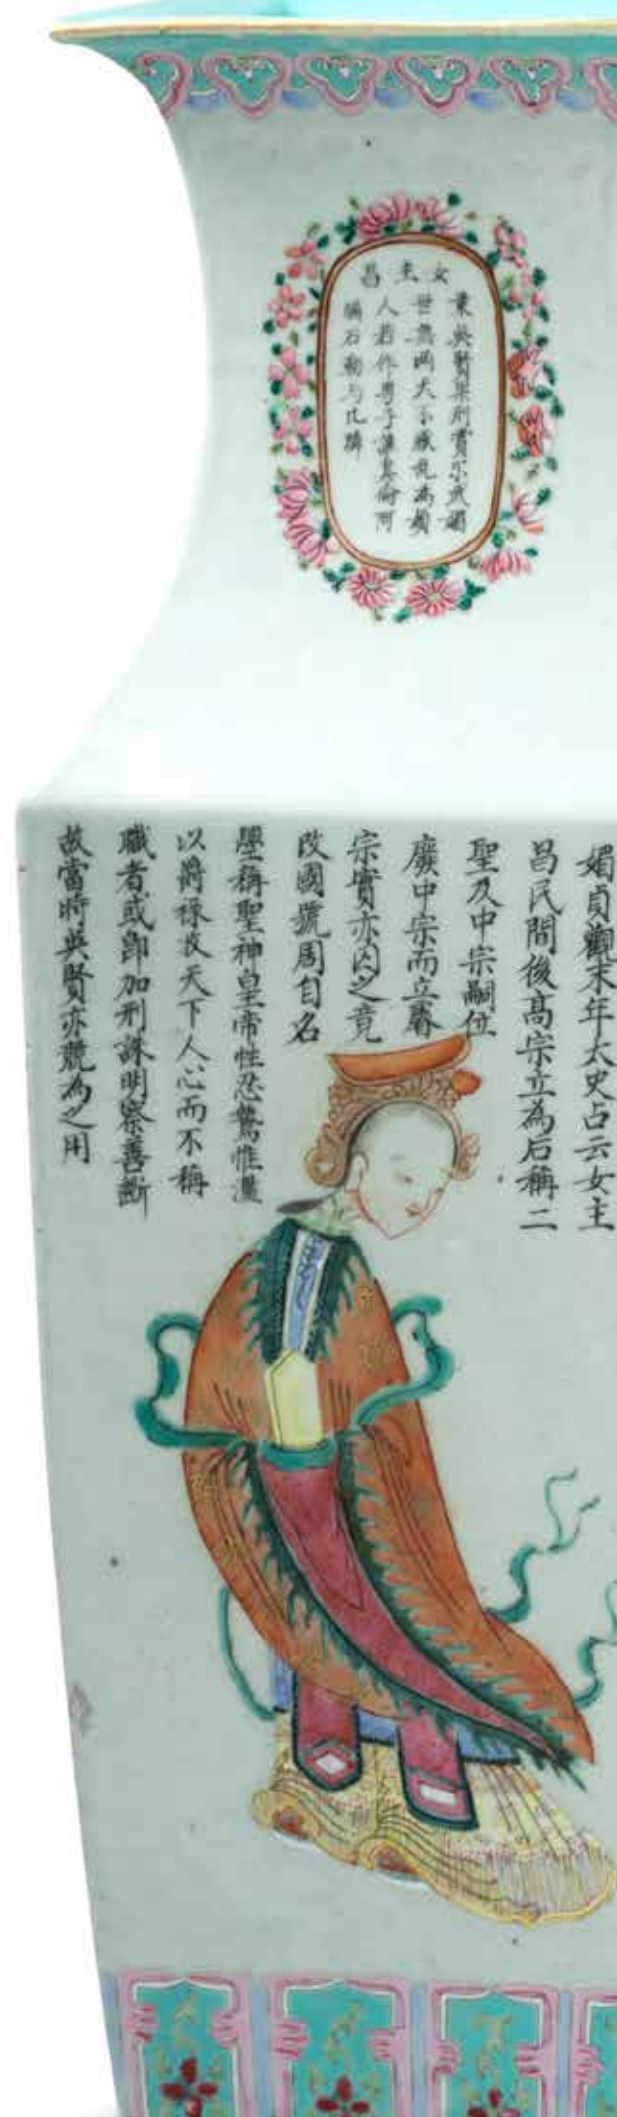 女主昌
賢刑賞武媚
世無兩天不厭亂為
人若作男子誰真倫阿
瞞石勒与比肩
媚貞觀末年太史占云女主
昌民間後高宗立為后稱二
聖及中宗嗣位
廢中宗而立睿
宗實亦囚之竟
改國號周自名
曌稱聖神皇帝性忍鷙惟濫
以爵祿收天下人心而不稱
職者或卽加刑誅明察善斷
故當時英賢亦競為之用